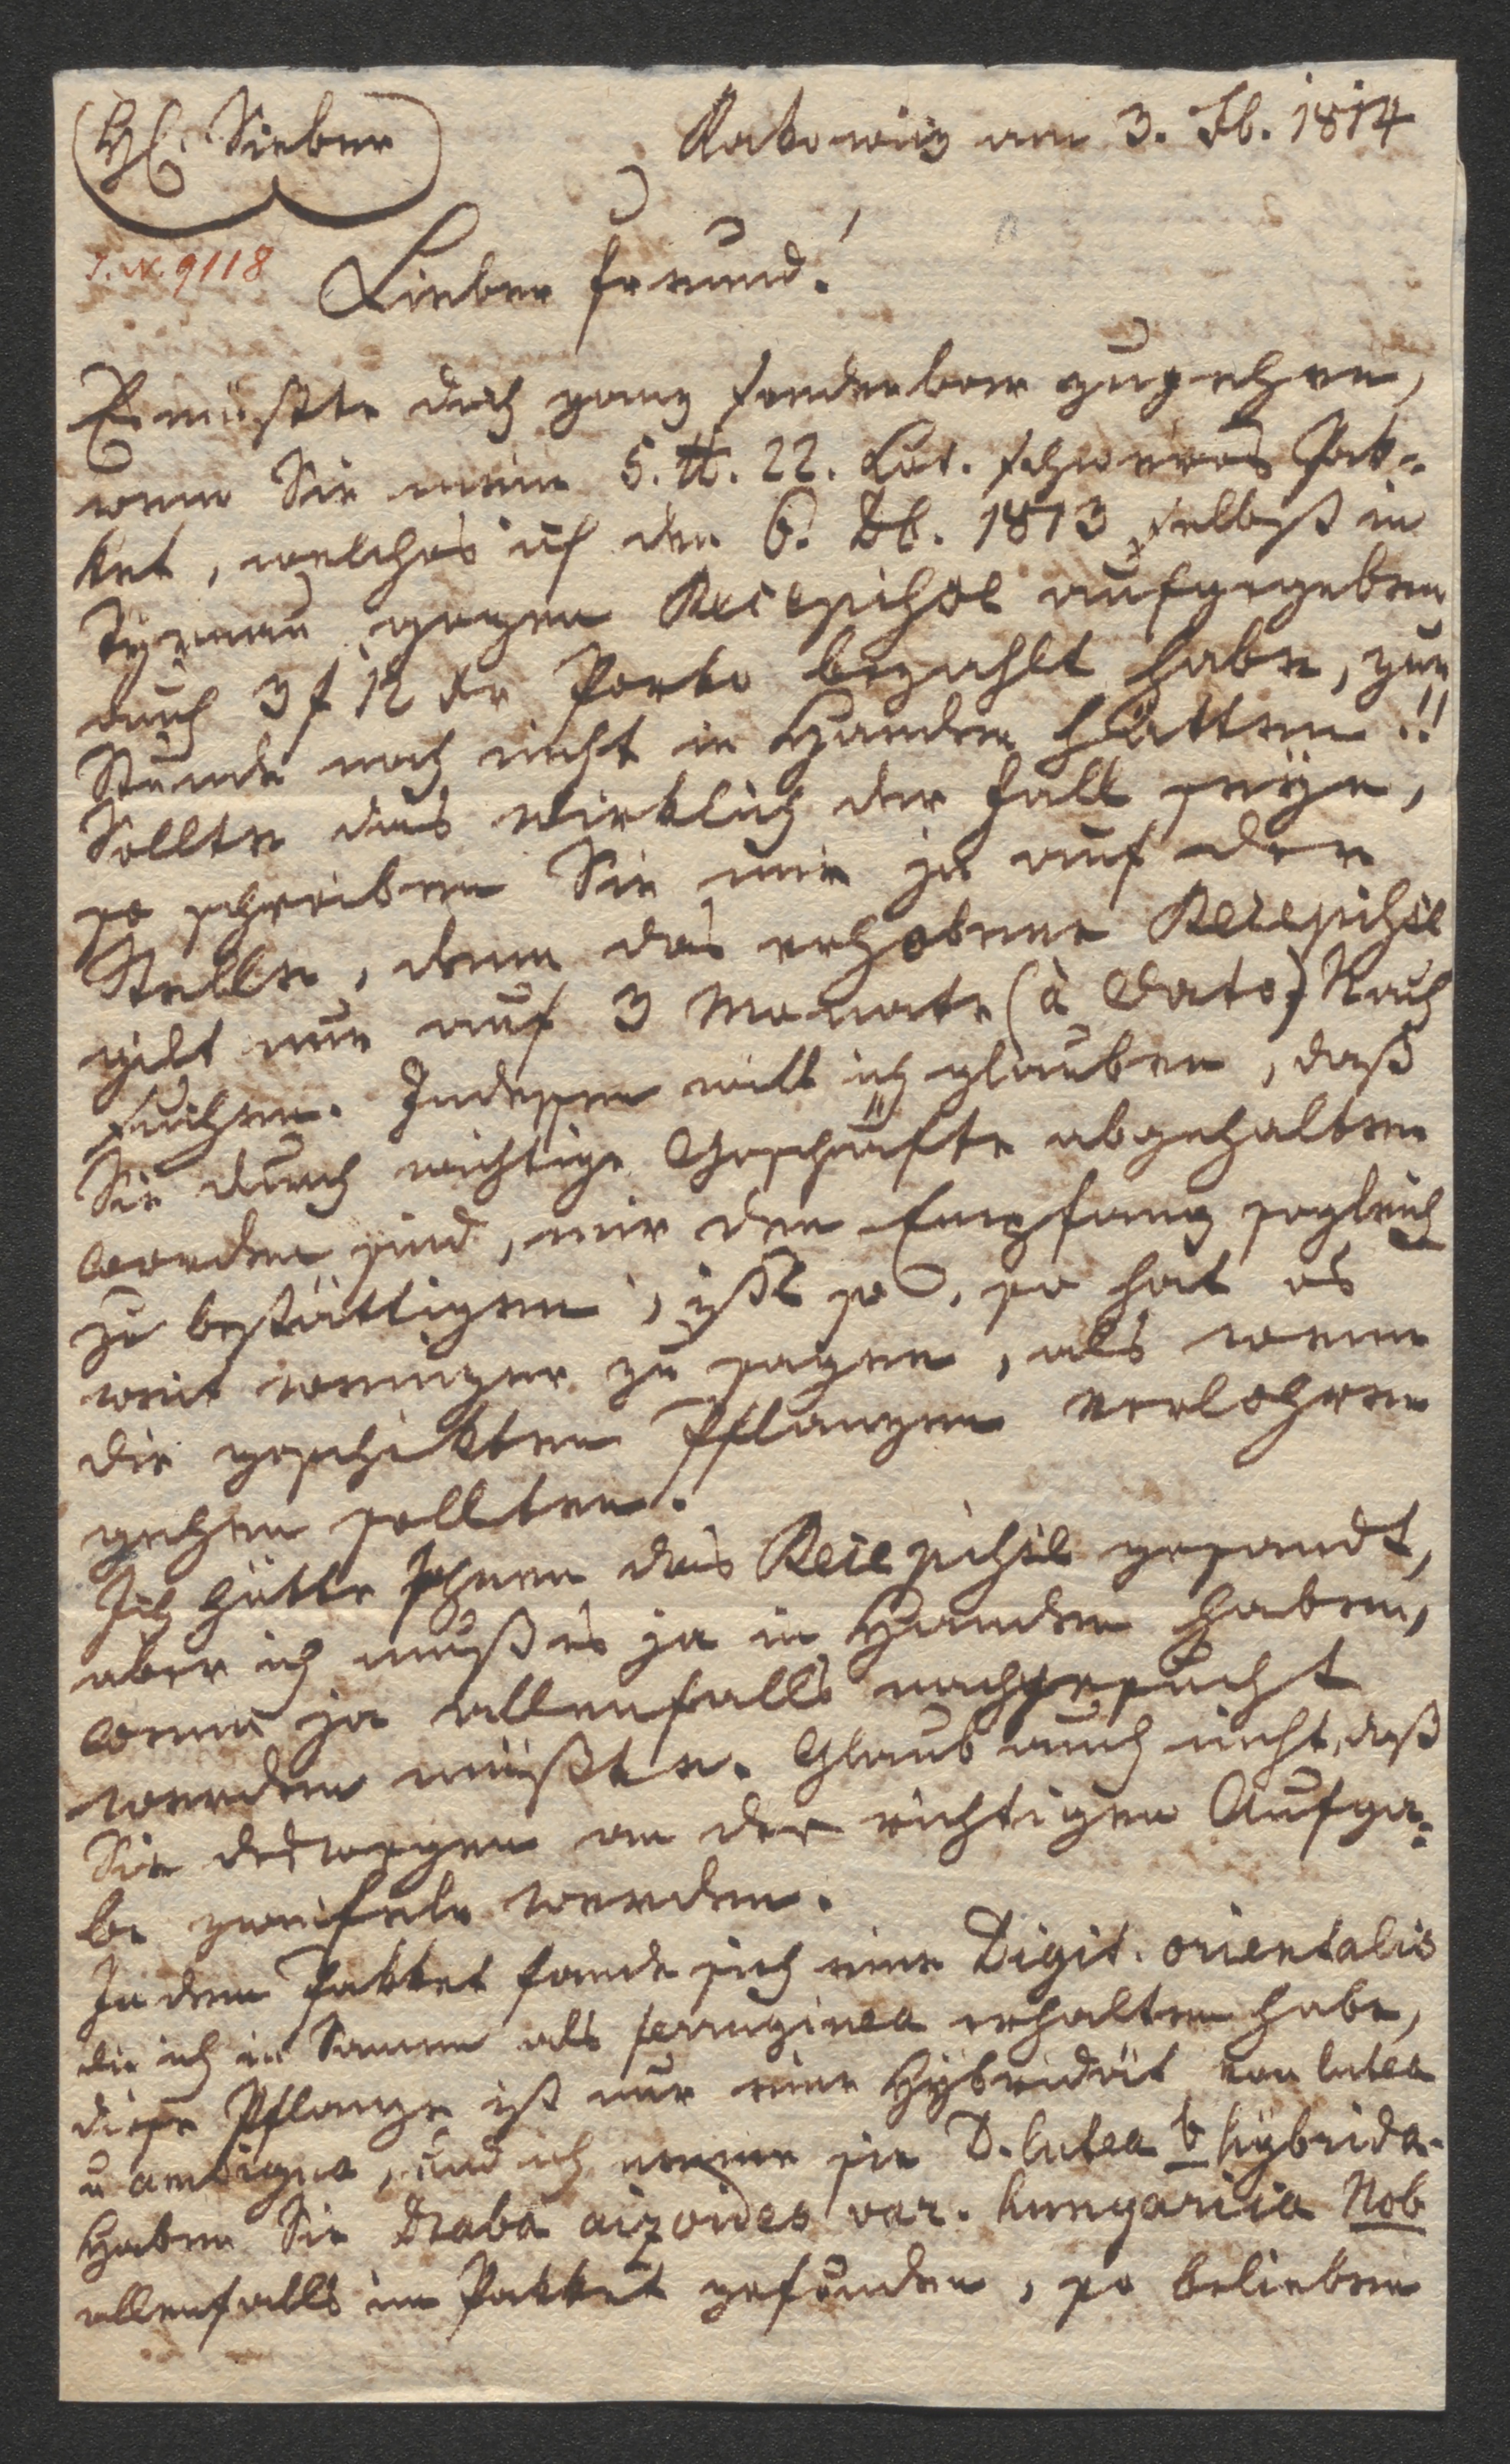 H. Sieber
Rakowitz am 3. Fb. 1814
I. N. 9118
Lieber Freund!
Es müßte doch ganz sonderbar zugehen,
wenn Sie mein 5. ℔. 22. Lot. schweres Pak-
ket, welches ich den 6. Db. 1813 selbst in
Tyrnau gegen Recepisse aufgegeben
auch 3 f 12 kr Porto bezahlt habe, zur
Stunde noch nicht in Handen hätten!!
Sollte das wirklich der Fall seyn,
so schreiben Sie mir ja auf der
Stelle, denn das erhobene Recepisse
gilt nur auf 3 Monate (à Dato) Nach
suchen. Indessen will ich glauben, daß
Sie durch wichtige Geschäfte abgehalten
worden sind, mir den Empfang sogleich
zu bestättigen; ists so, so hat es
weit weniger zu sagen, als wenn
die geschikten Pflanzen verlohren
gehen sollten.
Ich hätte Ihnen das Recepisse gesandt,
aber ich muß es ja in Handen haben,
wenn ja allenfalls nachgesucht
werden müßte. Glaub auch nicht, daß
Sie deswegen an der richtigen Aufga-
be zweifeln werden.
In dem Pakket fande sich eine Digit. orientalis
die ich in Samen als ferruginea erhalten habe,
diese Pflanze ist nur eine Hybridät von lutea
u ambigua, und ich nenne sie D. lutea b hybrida.
Haben Sie Draba aizoides var. hungarica Nob
allenfalls im Pakket gefunden, so belieben